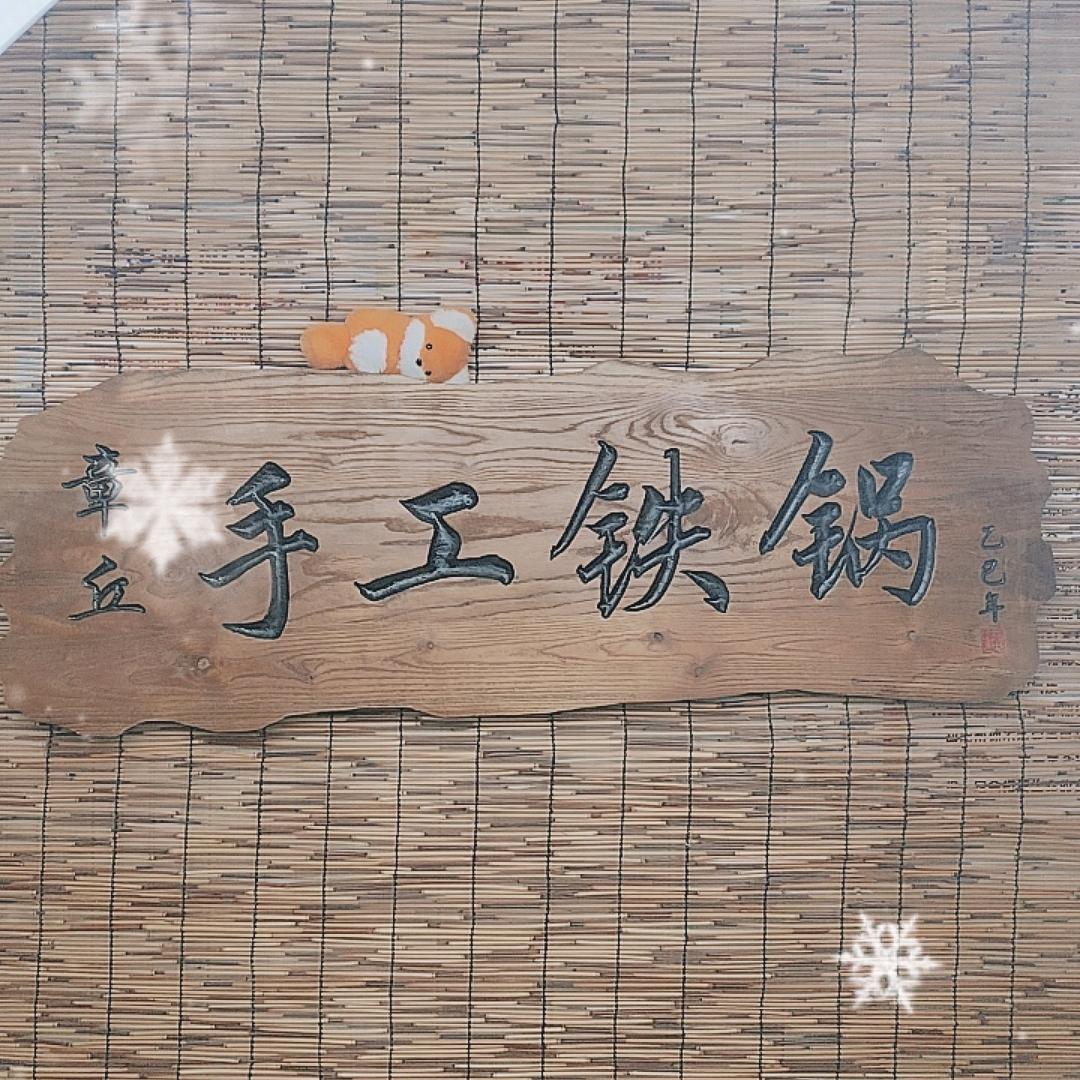 章丘
手工铁锅
乙巳年